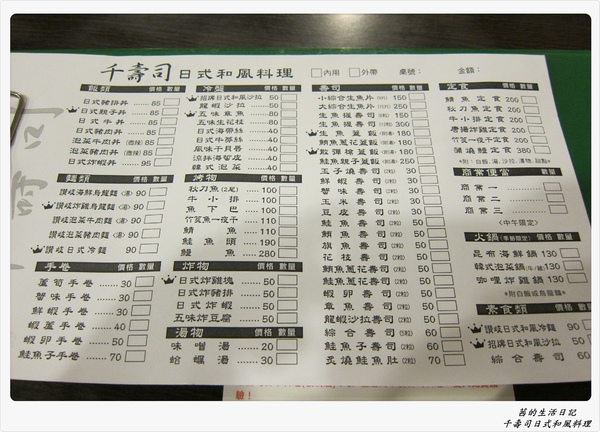 千壽司日式和風料理 □內用 □外帶 桌號： 金額：
飯類 價格 數量
日式豬排丼 85
日式親子丼 85
日式牛丼 85
日式豬肉丼 85
泡菜牛肉丼 (微辣) 85
泡菜豬肉丼 (微辣) 85
日式炸蝦丼 95
麵類 價格 數量
讚岐海鮮烏龍麵 (湯) 90
讚岐炸雞烏龍麵 (湯) 90
讚岐泡菜牛肉麵 (湯) 90
讚岐泡菜豬肉麵 (湯) 90
讚岐日式冷麵 90
手卷 價格 數量
蘆筍手卷 30
蟹味手卷 30
鮮蝦手卷 30
蝦蘆手卷 40
蝦卵手卷 50
鮭魚子手卷 70
冷盤 價格 數量
招牌日式和風沙拉 50
龍蝦沙拉 50
五味章魚 80
五味生花枝 80
日式海帶絲 40
日式牛蒡絲 40
風味干貝唇 40
涼拌海蜇皮 40
韓式泡菜 40
烤物 價格 數量
秋刀魚(2尾) 100
牛小排 100
魚下巴 100
竹筴魚一夜干 100
鯖魚 110
鮭魚頭 190
鰻魚 280
炸物 價格 數量
日式炸雞塊 50
日式炸豬排 50
日式炸蝦 50
五味炸豆腐 50
湯物 價格 數量
味噌湯 20
蛤蠣湯 30
壽司 價格 數量
小綜合生魚片 150
大綜合生魚片 250
生魚握壽司 150
生魚握壽司 300
生魚蓋飯 180
鮪魚蔥蓋飯 180
散彈槍蓋飯 250
鮭魚親子蓋飯 180
玉子燒壽司 (2粒) 30
鮮蝦壽司 (2粒) 30
蟹味壽司 (2粒) 30
玉米壽司 (2粒) 30
豆皮壽司 (2粒) 30
鮭魚壽司 (2粒) 50
鮪魚壽司 (2粒) 50
旗魚壽司 (2粒) 50
花枝壽司 (2粒) 50
鮪魚蔥花壽司 (2粒) 50
鮭魚蔥花壽司 (2粒) 50
蝦卵壽司 (2粒) 50
章魚壽司 (2粒) 50
龍蝦沙拉壽司 (2粒) 50
綜合壽司 (5粒) 60
鮭魚子壽司 (2粒) 60
炙燒鮭魚肚 (2粒) 60
定食 價格 數量
鯖魚定食 200
秋刀魚定食 200
牛小排定食 200
唐揚炸雞定食 200
竹筴一夜干定食 200
蒲燒鰻定食 380
*附：白飯、湯、沙拉、漬物、甜點*
商業便當 價格 數量
商業一
商業二
商業三
<中午限定>
火鍋 (季節限定) 價格 數量
昆布海鮮鍋 130
韓式泡菜鍋(牛/豬) 130
咖哩海鮮鍋 130
*附白飯或烏龍麵*
素食類 價格 數量
讚岐日式和風冷麵 90
招牌日式和風沙拉 50
綜合壽司 60
驗！
茜的生活日記
千壽司日式和風料理